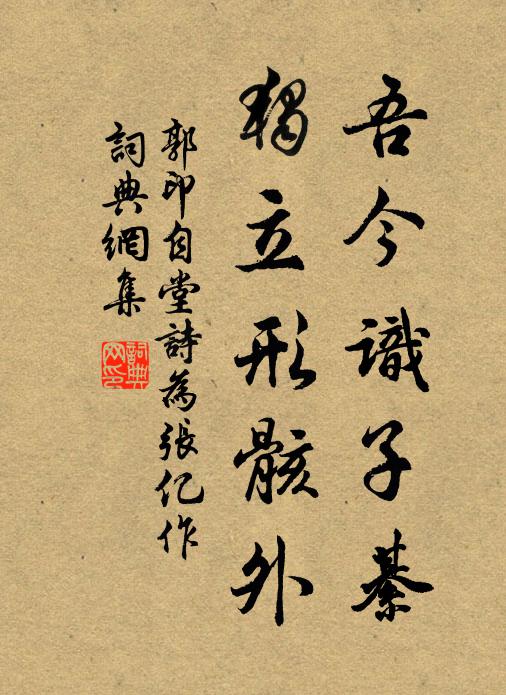 吾今識子綦
獨立形骸外
郭印自堂詩為張仡作
詞典網集
詞典网印